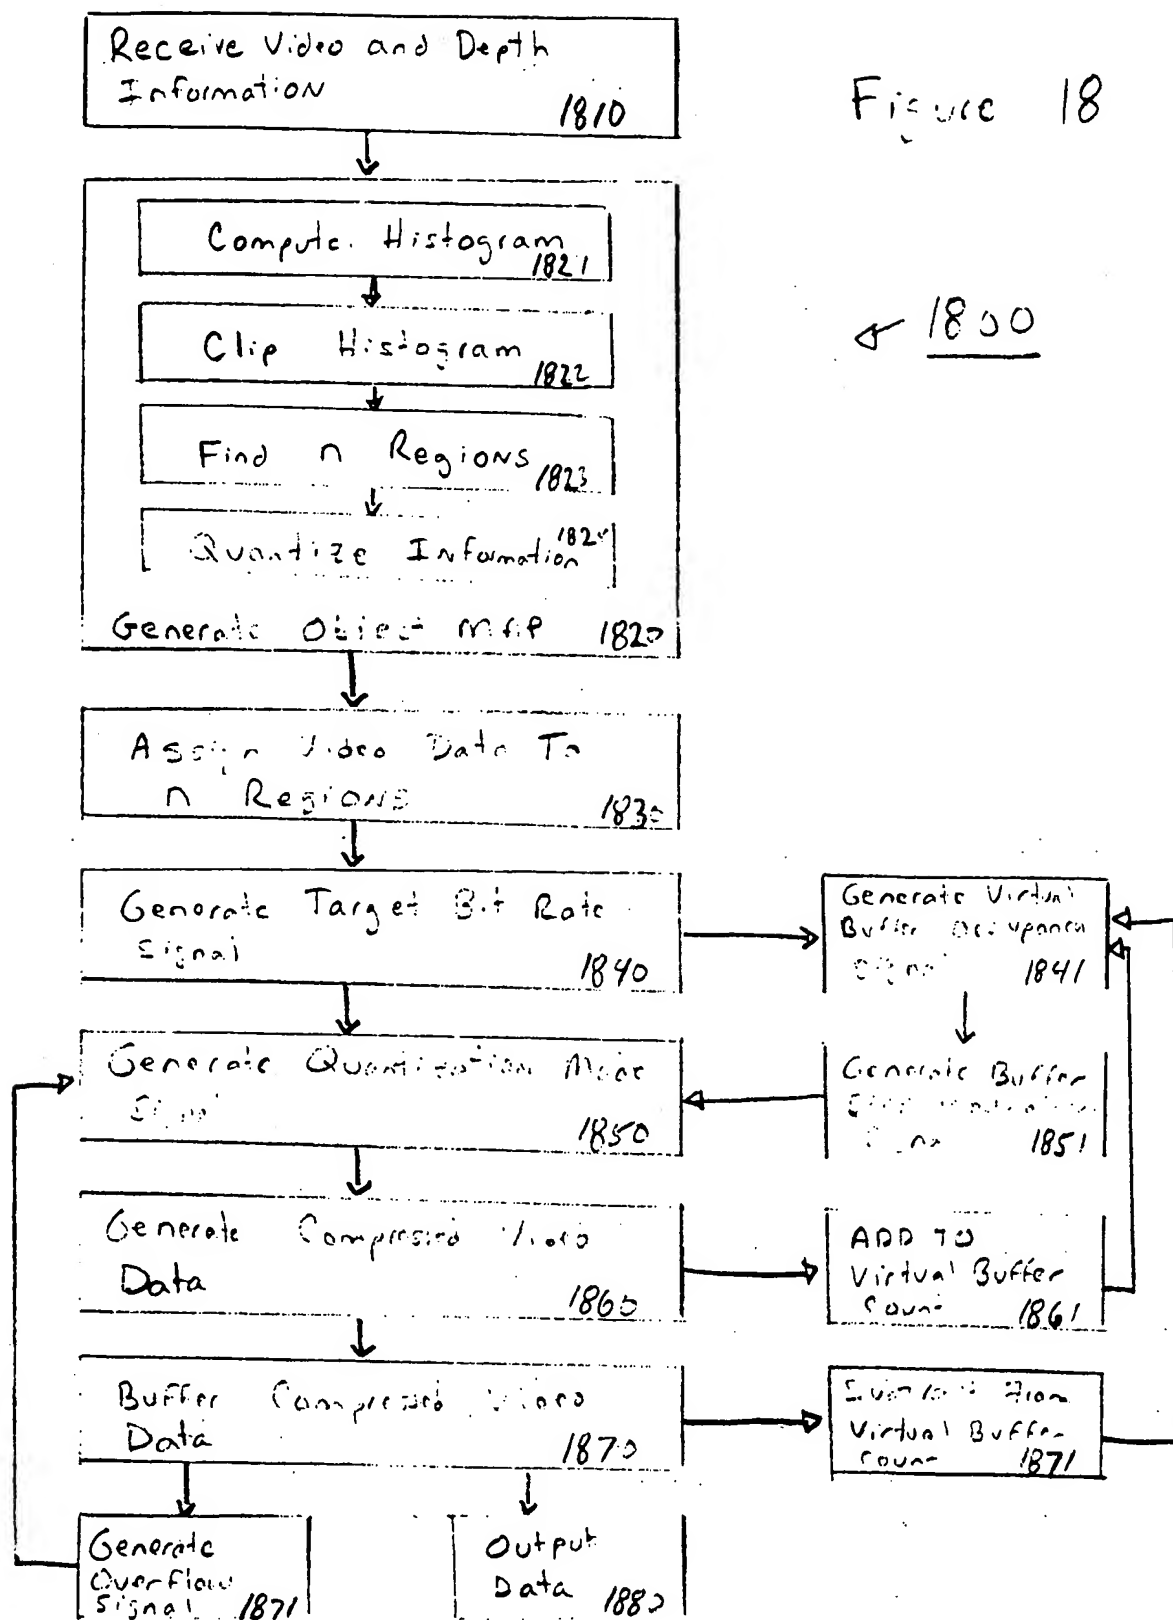 Receive Video and Depth
Information
1810
Figure 18
Compute Histogram
1821
1800
Clip Histogram
1822
Find n Regions
1823
Quantize Information
Generate Object MAP 1820
Assign Video Data To
n Regions
1830
Generate Target Bit Rate
Signal
1840
Generate Virtual
Buffer Occupancy
Signal 1841
Generate Quantization Mode
Signal
1850
Generate Buffer
1851
Generate Compressed Video
Data
1860
ADD TO
Virtual Buffer
Count
1861
Buffer Compressed Video
Data
1870
Subtract From
Virtual Buffer
Count 1871
Generate
Overflow
Signal 1871
Output
Data 1880